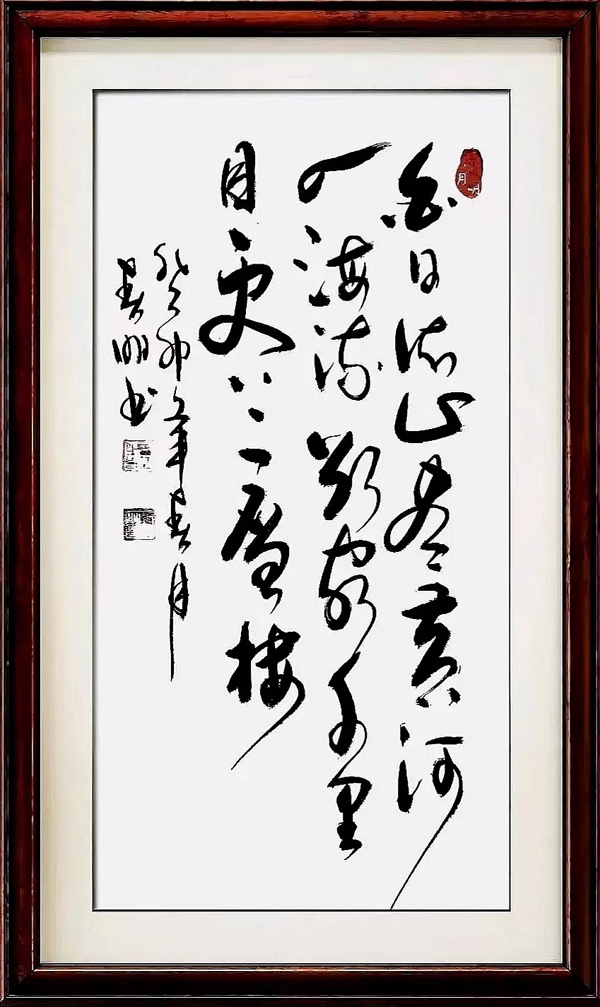 白日依山尽黄河
入海流欲窮千里
目更上一層樓
癸卯年春月
春明书